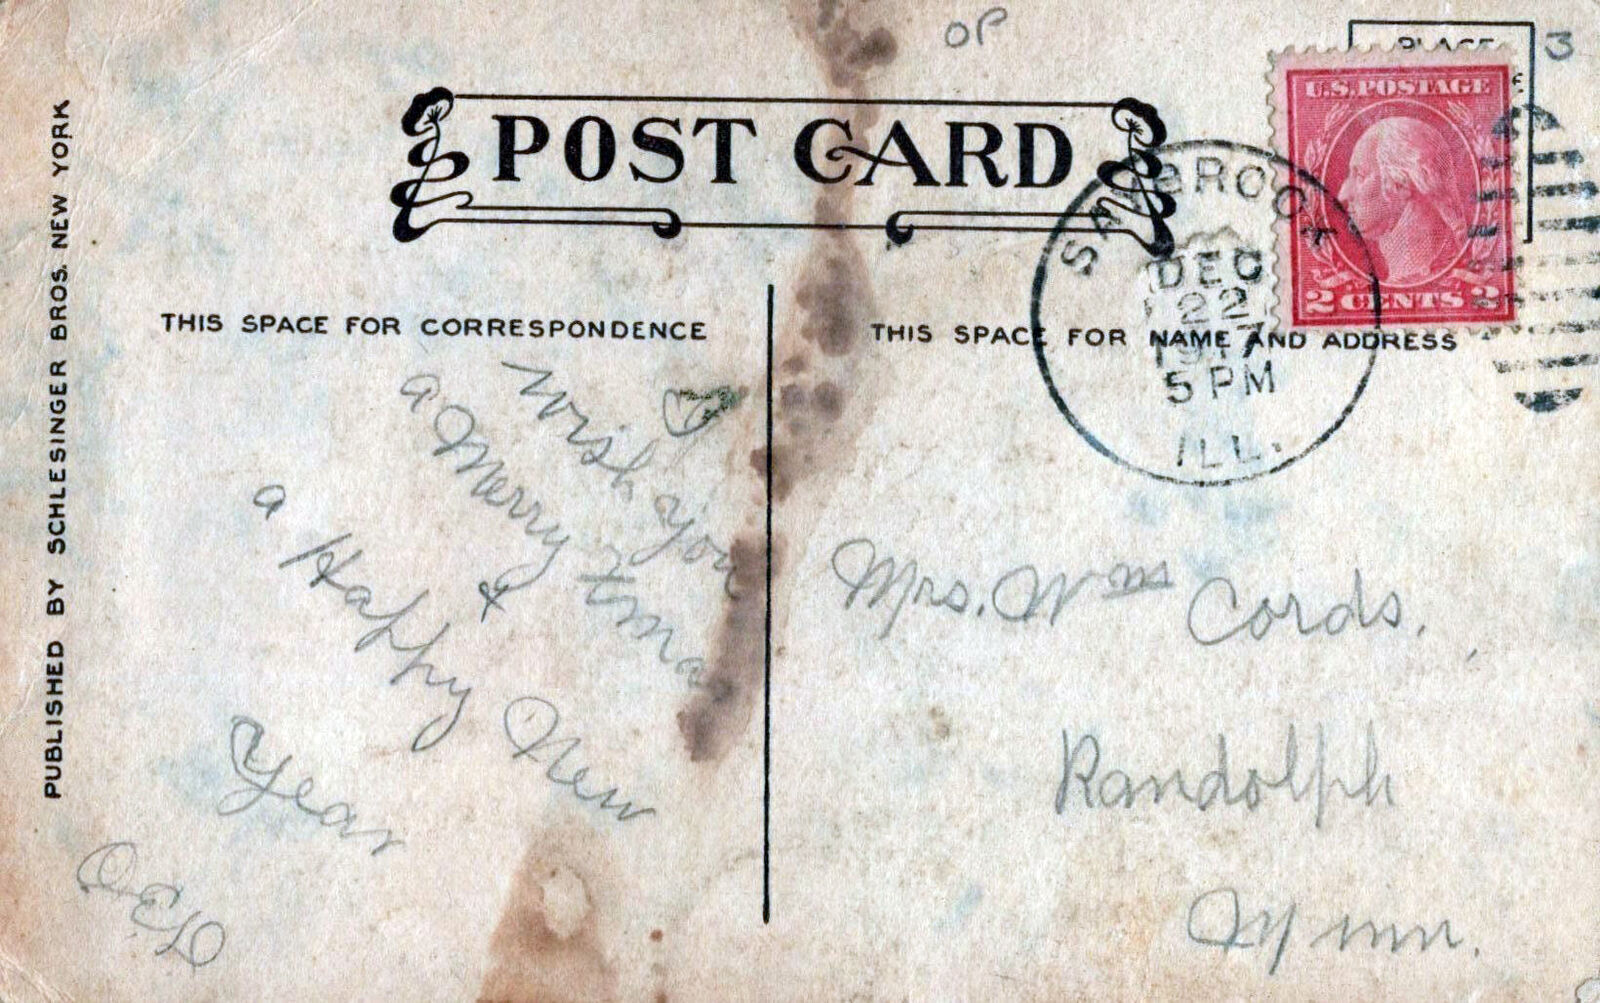 OP
3
PLACE
POST CARD
U.S. POSTAGE
2 CENTS 2
SAYBROOK
DEC
22
1917
5 PM
ILL.
PUBLISHED BY SCHLESINGER BROS. NEW YORK
THIS SPACE FOR CORRESPONDENCE
THIS SPACE FOR NAME AND ADDRESS
I
wish you
a Merry Xmas
&
a Happy New
Year
Mrs. Wm Cords,
Randolph
Minn.